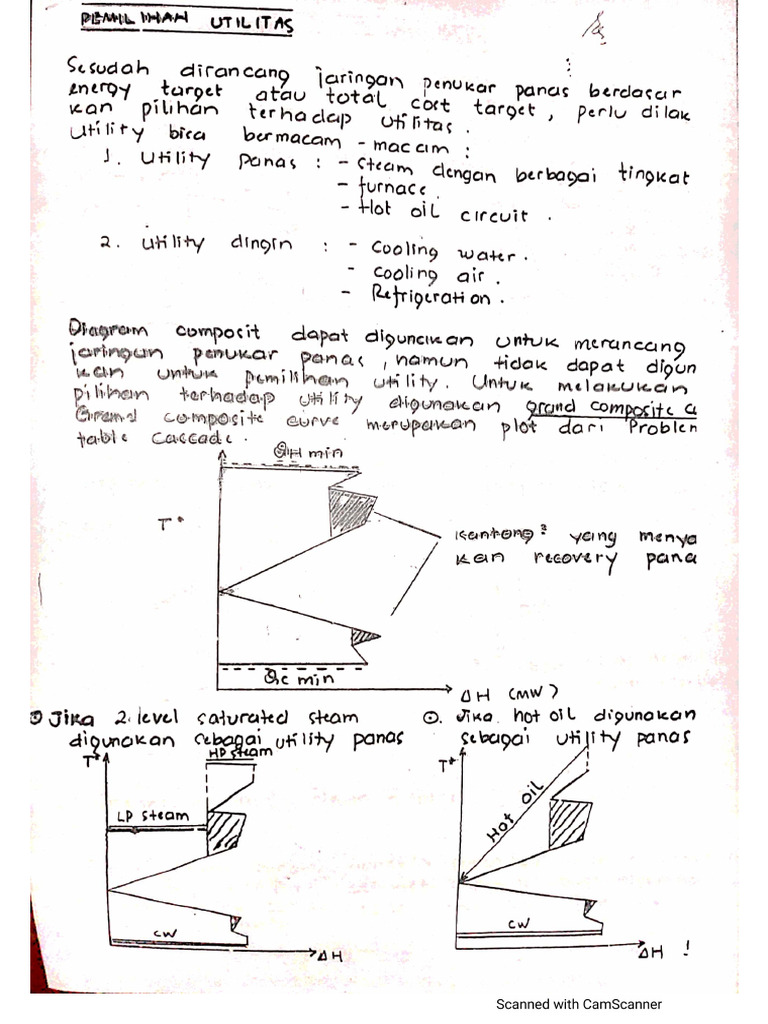 PEMILIHAN UTILITAS
Sesudah dirancang jaringan penukar panas berdasar
energy target atau total cost target, perlu dilak
kan pilihan terhadap utilitas.
Utility bisa bermacam-macam :
1. Utility panas : - Steam dengan berbagai tingkat
- furnace.
- Hot oil circuit.
2. Utility dingin : - Cooling water.
- Cooling air.
- Refrigeration.
Diagram composit dapat digunakan untuk merancang
jaringan penukar panas, namun tidak dapat digun
kan untuk pemilihan utility. Untuk melakukan
pilihan terhadap utility digunakan grand composite c
Grand composite curve merupakan plot dari Problem
table Cascade.
QH min
T*
Kantong² yang menya
kan recovery pana
Qc min
ΔH (MW)
Jika 2 level saturated steam
digunakan sebagai utility panas
Jika hot oil digunakan
sebagai utility panas
T*
HP steam
LP steam
CW
ΔH
T*
Hot Oil
CW
ΔH !
Scanned with CamScanner